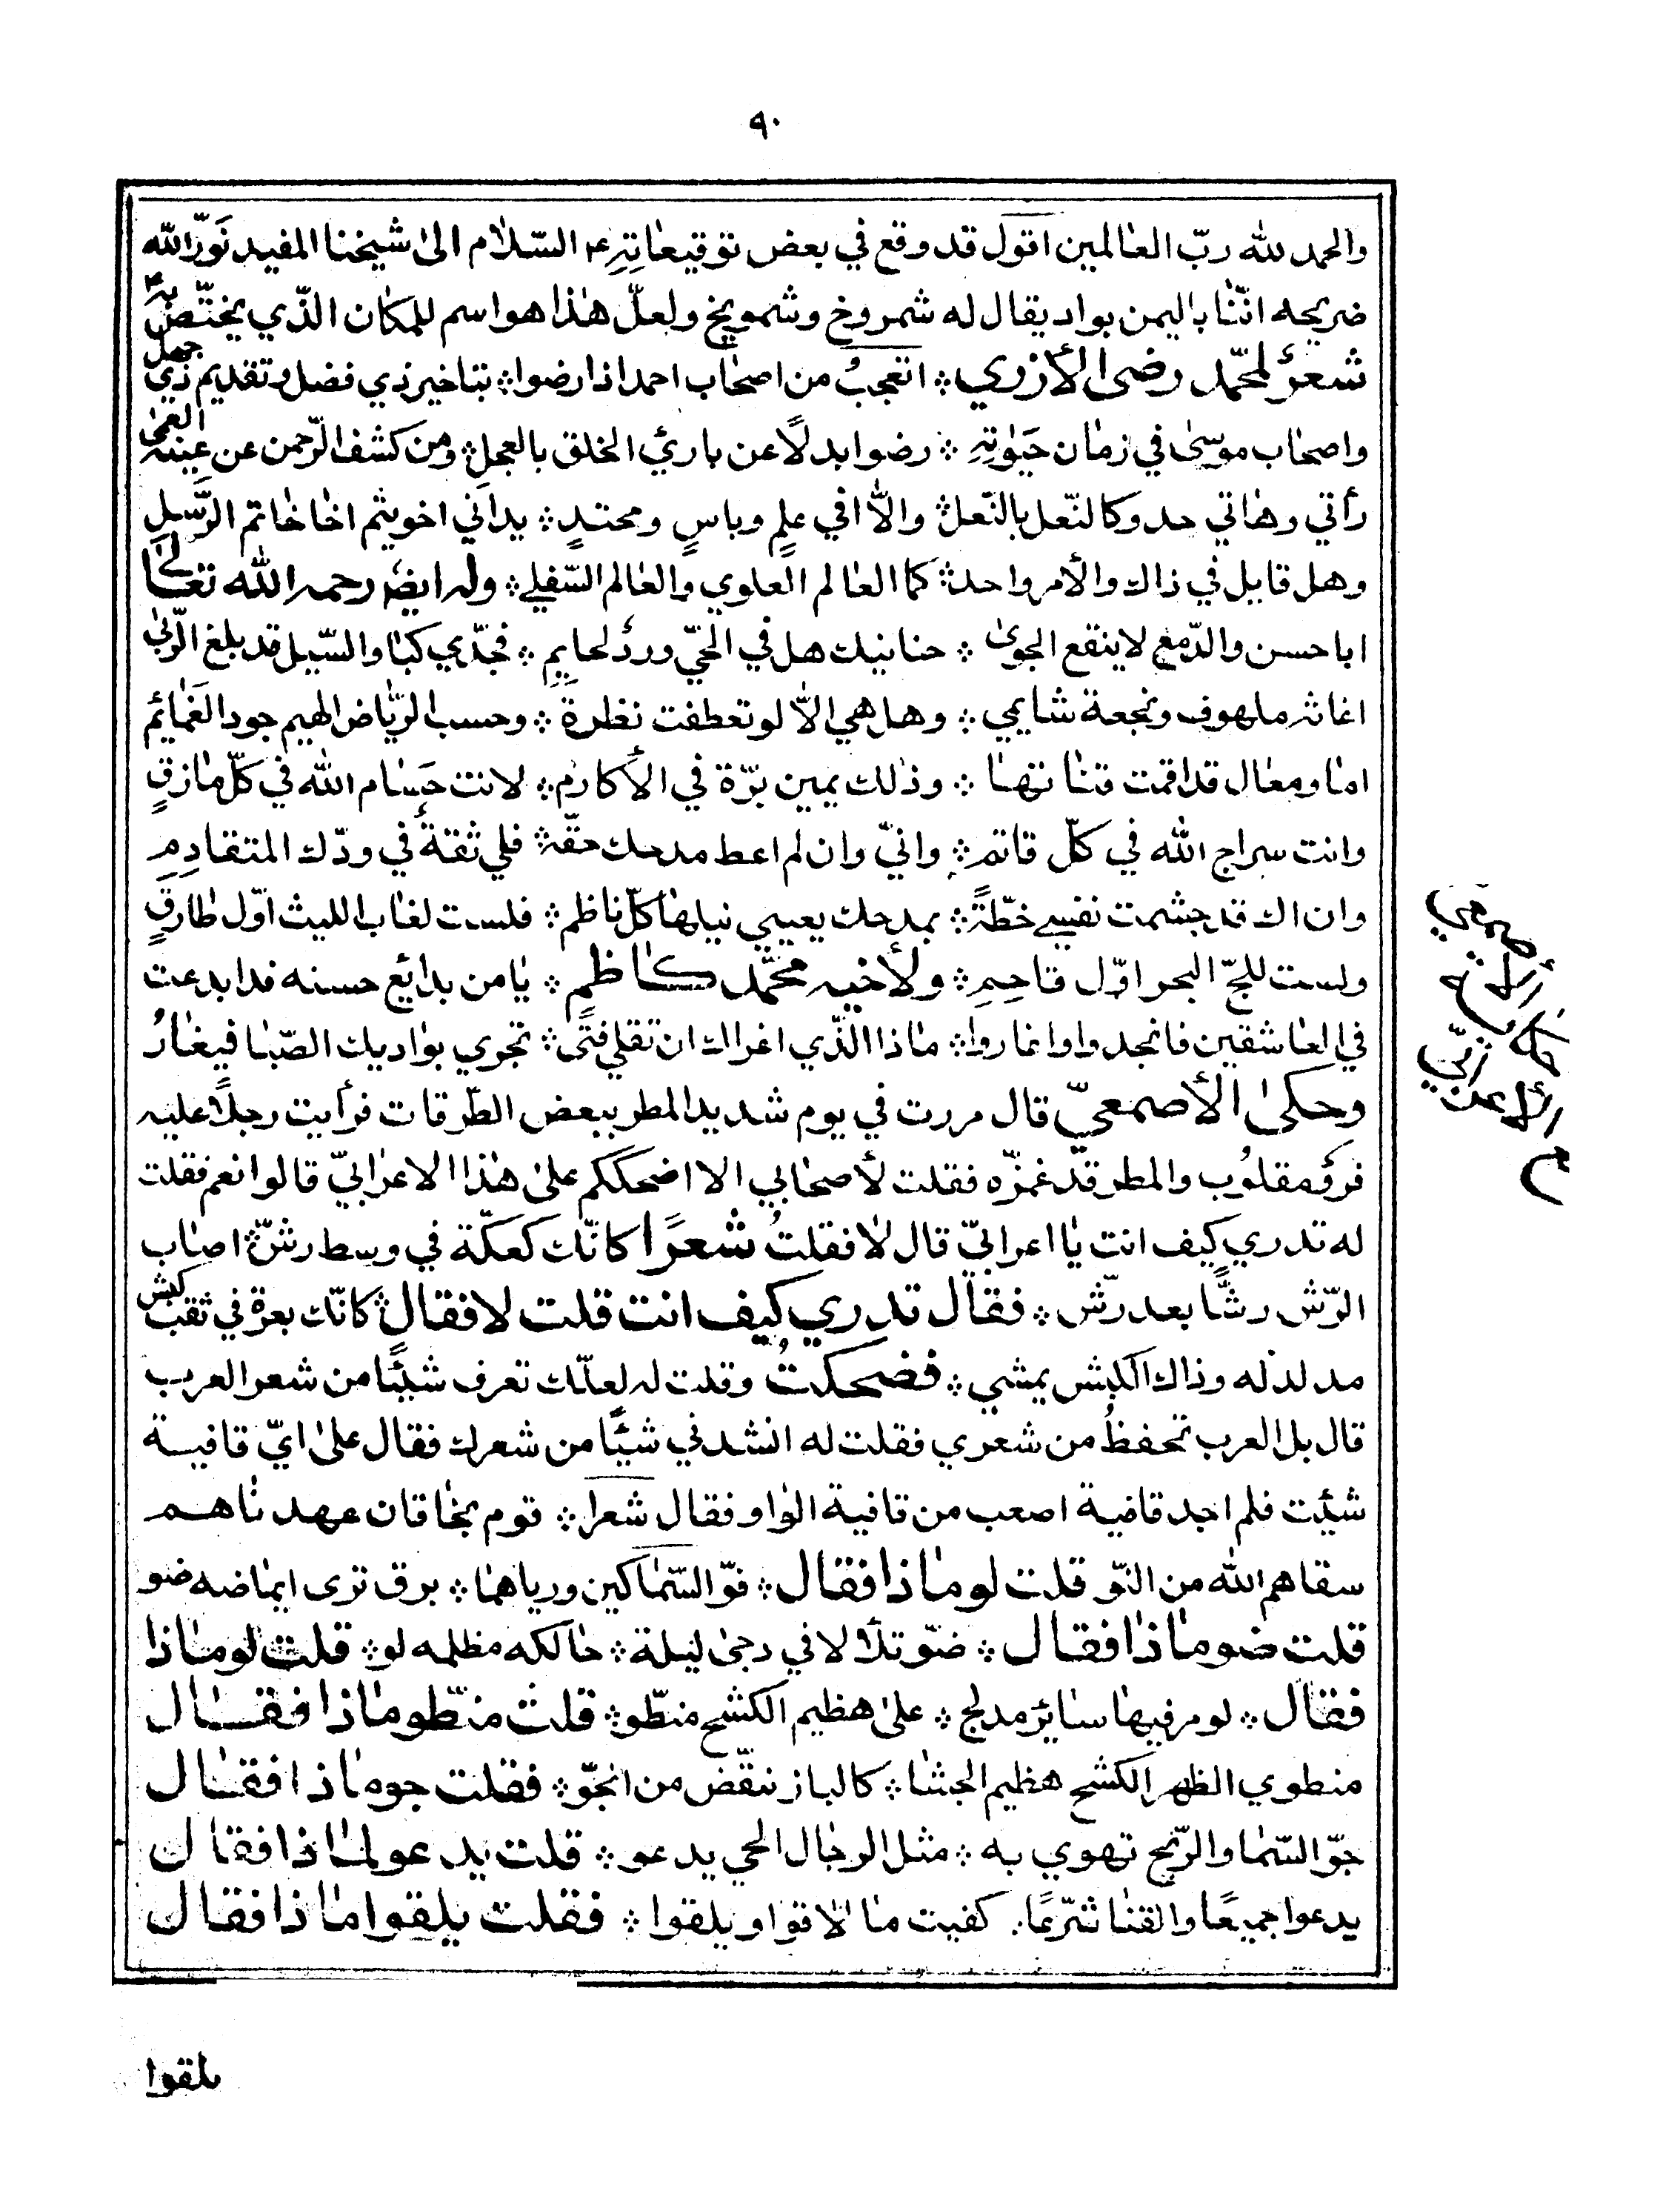 ٩٠
والحمد لله ربّ العالمين اقول قد وقع في بعض توقيعاته ع السّلام الى شيخنا المفيد نوّر الله
ضريحه انّنا باليمن بواد يقال له شمروخ وشمويخ ولعلّ هذا هو اسم للمكان الذّي يختّص به
شعرٌ لمحمّد رضى الأزري ؞ اتعجبُ من اصحاب احمد اذا رضوا ؞ بتاخير ذي فضل وتقديم ذي جهل
واصحاب موسى في زمان حيوته ؞ رضوا بدلًا عن باريء الخلق بالعجل ؞ ومن كشف الرّحمن عن عينه العمى
رأتي وهاتي حد وكالنّعل بالنّعل ؞ والّا افي علمٍ وباسٍ ومحتدٍ ؞ يداني اخو يثم اخا خاتم الرّسل
وهل قايل في ذاك والأمر واحد ؞ كما العالم العلوي والعالم السّفلي ؞ وله ايضا رحمه الله تعالى
ابا حسن والدّمع لا ينقع الجوى ؞ حنانيك هل في الحيّ وردٌ لحايم ؞ فجّدي كبا والسّيل قد بلغ الرّبى
اغاثه ملهوف ونجعة شايمي ؞ وهل هي الّا لو تعطفت نظرة ؞ وحسب الرّياض الهيم جود الغمائم
اما ومعال قد اقمت قناتها ؞ وذلك يمين برّة في الأكارم ؞ لانت حسام الله في كلّ مازقٍ
وانت سراج الله في كلّ قاتم ؞ وانيّ وان لم اعط مدحك حقّه ؞ فلي ثقةٌ في ودّك المتقادِمِ
وان اك قد جشمت نفسي خطّةً ؞ بمدحك يعيي نيلها كلّ ناظم ؞ فلست لغاب الليث اوّل طارقٍ
ولست للجّ البحر اوّل قاحِمِ ؞ ولأخيه محمّد كاظم ؞ يا من بدائع حسنه قد ابدعت
في العاشقين فانجدوا واغاروا ؞ ماذا الذّي اغراك ان تقلي فتًى ؞ تجري بواديك الصّبا فيغارُ
وحكى الأصمعيّ قال مررت في يوم شديد المطر ببعض الطّرقات فرأيت رجلًا عليه
فروٌ مقلوب والمطر قد غمزّه فقلت لأصحابي الا اضحككم على هذا الاعرابيّ قالوا نعم فقلت
له تدري كيف انت يا اعرابيّ قال لا فقلتُ شعرًا كانّك كعكّة في وسط رشّ ؞ اصاب
الرّش رشًّا بعد رّش ؞ فقال تدري كيف انت قلت لا فقال ؞ كانّك بعرة في ثقب كبش
مدلدله وذاك الكبش يمشي ؞ فضحكتُ وقلت له لعلّك تعرف شيئًا من شعر العرب
قال بل العرب تحفظُ من شعري فقلت له انشدني شيئًا من شعرك فقال على ايّ قافية
شئت فلم اجد قافية اصعب من قافية الواو فقال شعرا ؞ قوم بخاقان عهدناهم
سقاهم الله من النّو قلت لو ماذا فقال ؞ نوّ السّماكين ورياهما ؞ برق ترى ايماضه ضو
قلت ضو ماذا فقال ؞ ضوّ تلألا في دجى ليلة ؞ حالكه مظلمه لو ؞ قلت لو ماذا
فقال ؞ لو مر فيها سائر مدلج ؞ على هظيم الكشح منطّو ؞ قلت منطّو ماذا فقال
منطوي الظهر الكشح هظيم الحشا ؞ كالباز ينقّض من الجّو ؞ فقلت جو ماذا فقال
جوّ السّما والرّيح تهوي به ؞ مثل الرجال الحي يدعو ؞ قلت يدعو لماذا فقال
يدعوا جميعًا والقنا شرّعًا ؞ كفيت ما لاقوا ويلقوا ؞ فقلت يلقوا ماذا فقال
يلقوا
حكاية
الأصمعي
مع
الأعرابيّ